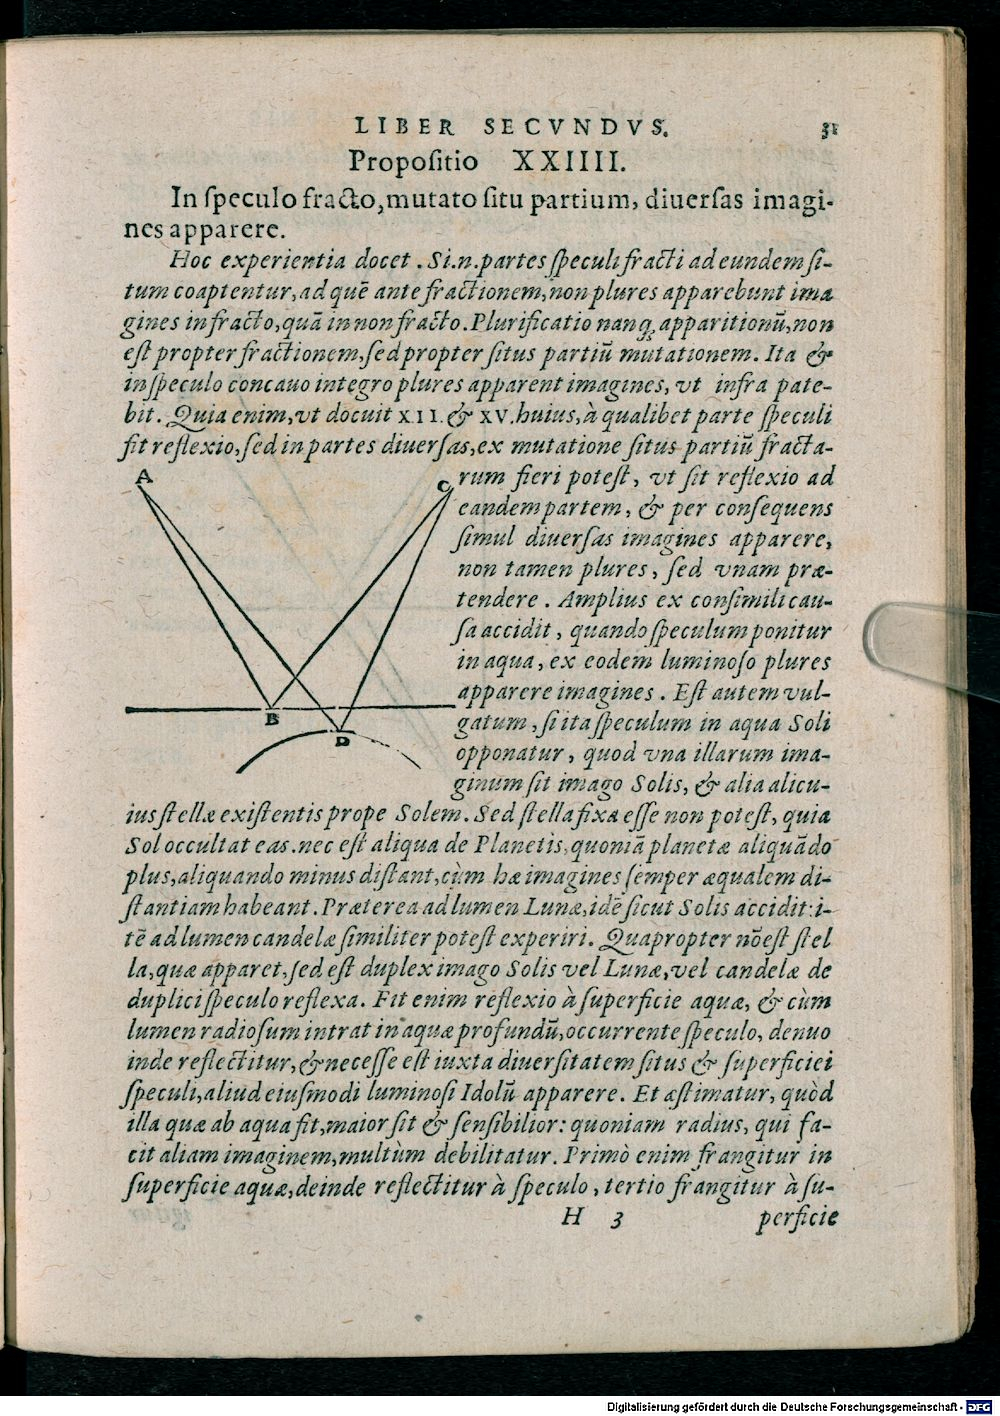 LIBER SECVNDVS. 31
Propositio XXIIII.
In ſpeculo fracto, mutato ſitu partium, diuerſas imagi-
nes apparere.
Hoc experientia docet. Si.n.partes ſpeculi fracti ad eundem ſi-
tum coaptentur, ad quē ante fractionem, non plures apparebunt ima
gines in fracto, quā in non fracto. Plurificatio nanq; apparitionū, non
eſt propter fractionem, ſed propter ſitus partiū mutationem. Ita &
in ſpeculo concauo integro plures apparent imagines, vt infra pate-
bit. Quia enim, vt docuit XII. & XV. huius, à qualibet parte ſpeculi
fit reflexio, ſed in partes diuerſas, ex mutatione ſitus partiū fracta-
A
C
rum fieri poteſt, vt ſit reflexio ad
eandem partem, & per conſequens
ſimul diuerſas imagines apparere,
non tamen plures, ſed vnam præ-
tendere. Amplius ex conſimili cau-
ſa accidit, quando ſpeculum ponitur
in aqua, ex eodem luminoſo plures
apparere imagines. Eſt autem vul-
gatum, ſi ita ſpeculum in aqua Soli
opponatur, quod vna illarum ima-
ginum ſit imago Solis, & alia alicu-
B
D
ius ſtellæ exiſtentis prope Solem. Sed ſtella fixa eſſe non poteſt, quia
Sol occultat eas. nec eſt aliqua de Planetis, quoniā planetæ aliquādo
plus, aliquando minus diſtant, cùm hæ imagines ſemper æqualem di-
ſtantiam habeant. Præterea ad lumen Lunæ, idē ſicut Solis accidit: i-
tē ad lumen candelæ ſimiliter poteſt experiri. Quapropter nō eſt ſtel
la, quæ apparet, ſed eſt duplex imago Solis vel Lunæ, vel candelæ de
duplici ſpeculo reflexa. Fit enim reflexio à ſuperficie aquæ, & cùm
lumen radioſum intrat in aquæ profundū, occurrente ſpeculo, denuo
inde reflectitur, & neceſſe eſt iuxta diuerſitatem ſitus & ſuperficiei
ſpeculi, aliud eiuſmodi luminoſi Idolū apparere. Et æſtimatur, quòd
illa quæ ab aqua fit, maior ſit & ſenſibilior: quoniam radius, qui fa-
cit aliam imaginem, multùm debilitatur. Primò enim frangitur in
ſuperficie aquæ, deinde reflectitur à ſpeculo, tertio frangitur à ſu-
H 3 perficie
Digitalisierung gefördert durch die Deutsche Forschungsgemeinschaft - DFG